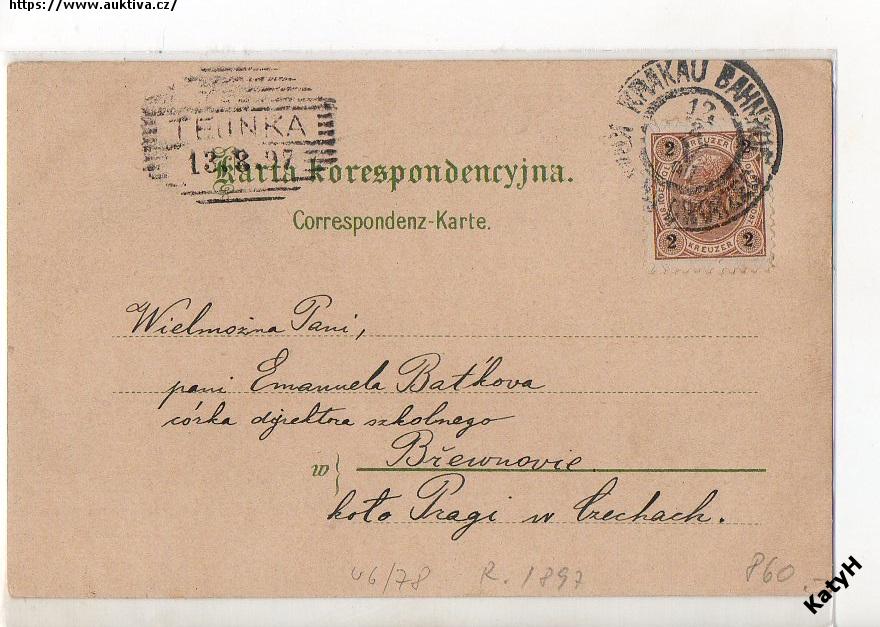 https://www.auktiva.cz/
KRAKAU BAHNHOF
12
13.8.97
2 KREUZER 2
2 KREUZER 2
Karta korespondencyjna.
Correspondenz-Karte.
Wielmożna Pani,
pani Emanuela Baťkova
córka dyrektora szkolnego
w Břewnovie
koło Pragi w Czechach.
46/78 R. 1897 860.-
KatyH